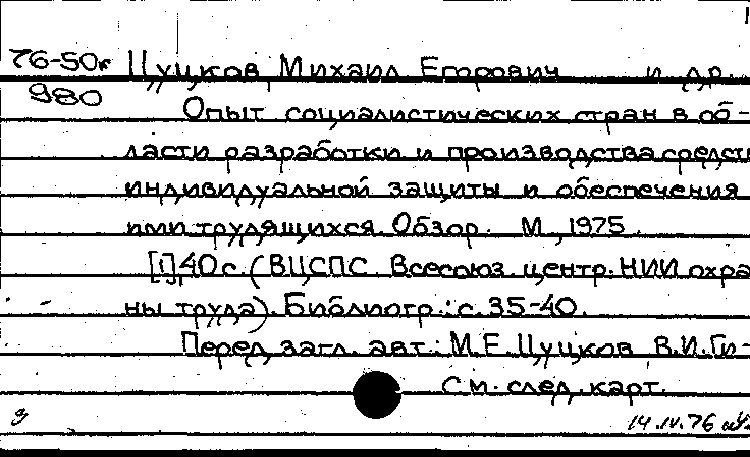 76-50к Цуцков, Михаил Егорович и др.
980
Опыт социалистических стран в об-
ласти разработки и производства средств
индивидуальной защиты и обеспечения
ими трудящихся. Обзор. М., 1975.
[1], 40 с. (ВЦСПС. Всесоюз. центр. НИИ охра
ны труда). Библиогр.: с. 35-40.
Перед загл. авт.: М.Е. Цуцков, В.И. Ги-
См. след. карт.
14.IV.76